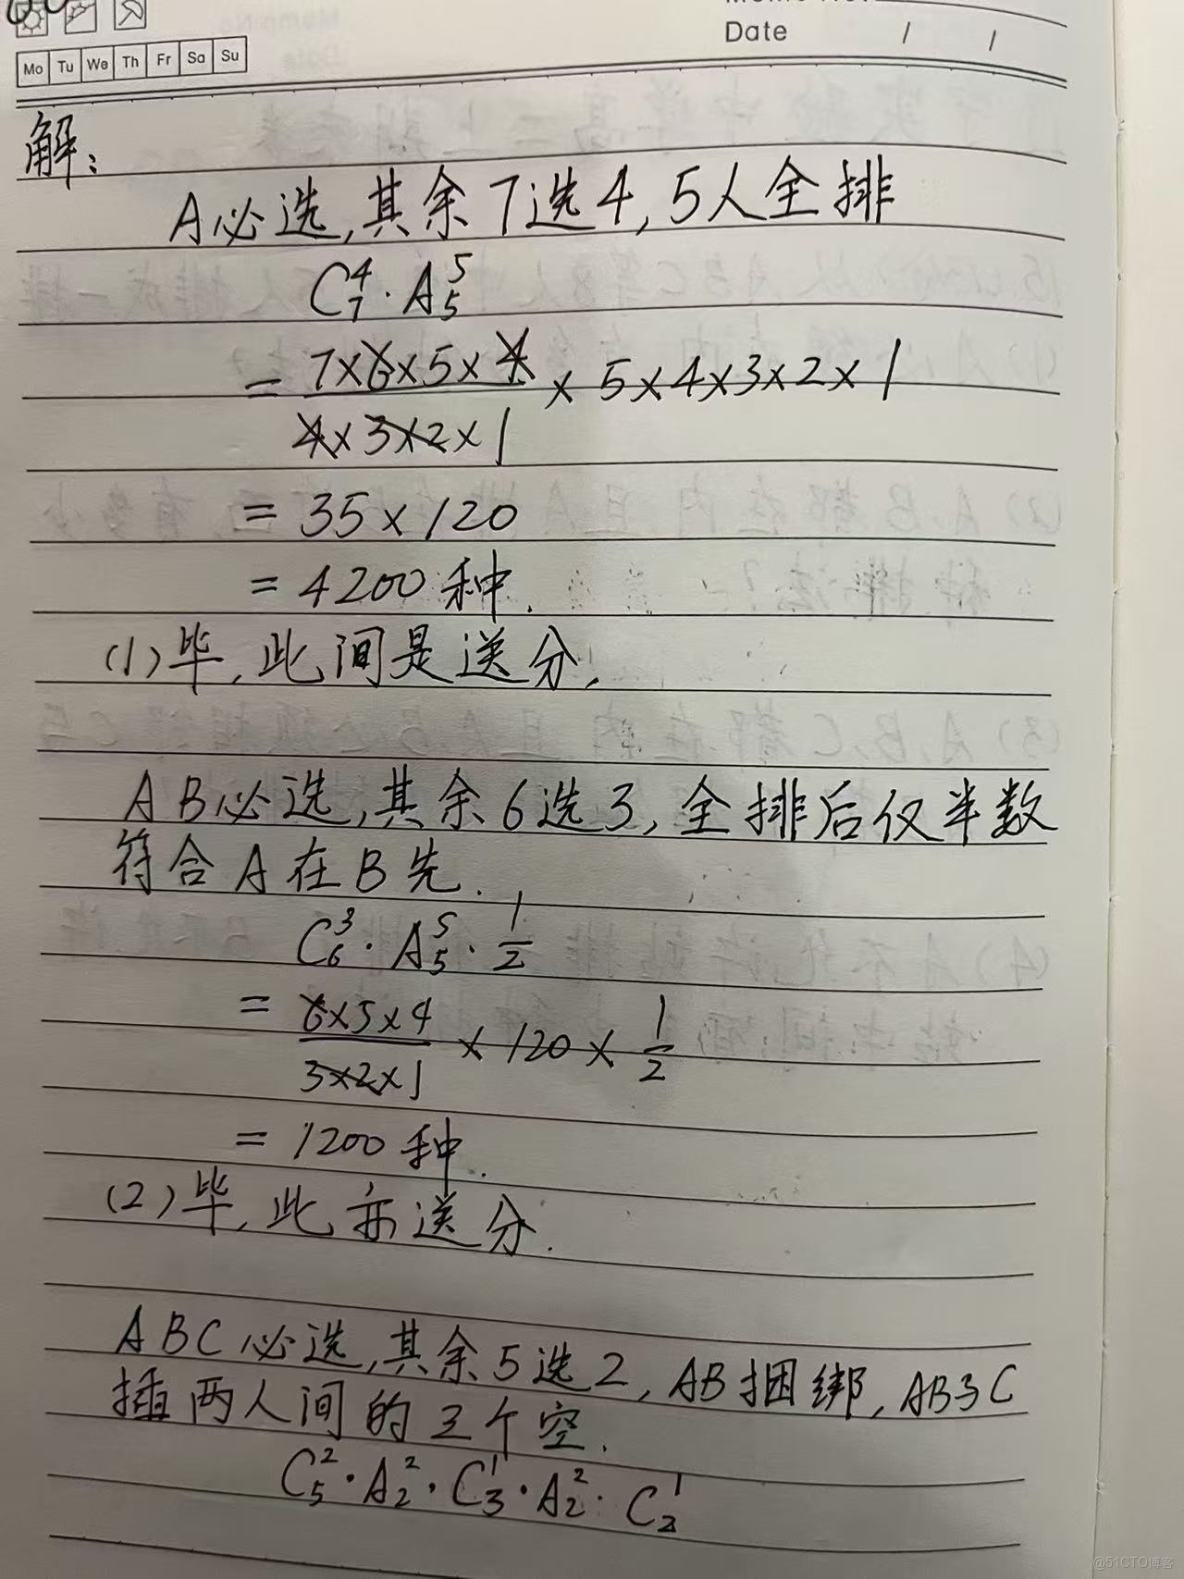 Date / /
Mo Tu We Th Fr Sa Su
解:
A必选,其余7选4,5人全排
C₇⁴·A₅⁵
= 7×6×5×4 / 4×3×2×1 × 5×4×3×2×1
= 35×120
= 4200种.
(1)毕,此间是送分,
AB必选,其余6选3,全排后仅半数
符合A在B先.
C₆³·A₅⁵·1/2
= 6×5×4 / 3×2×1 × 120 × 1/2
= 1200种.
(2)毕,此亦送分.
ABC必选,其余5选2,AB捆绑,AB与C
插两人间的三个空.
C₅²·A₂²·C₃¹·A₂²·C₂¹
@51CTO博客